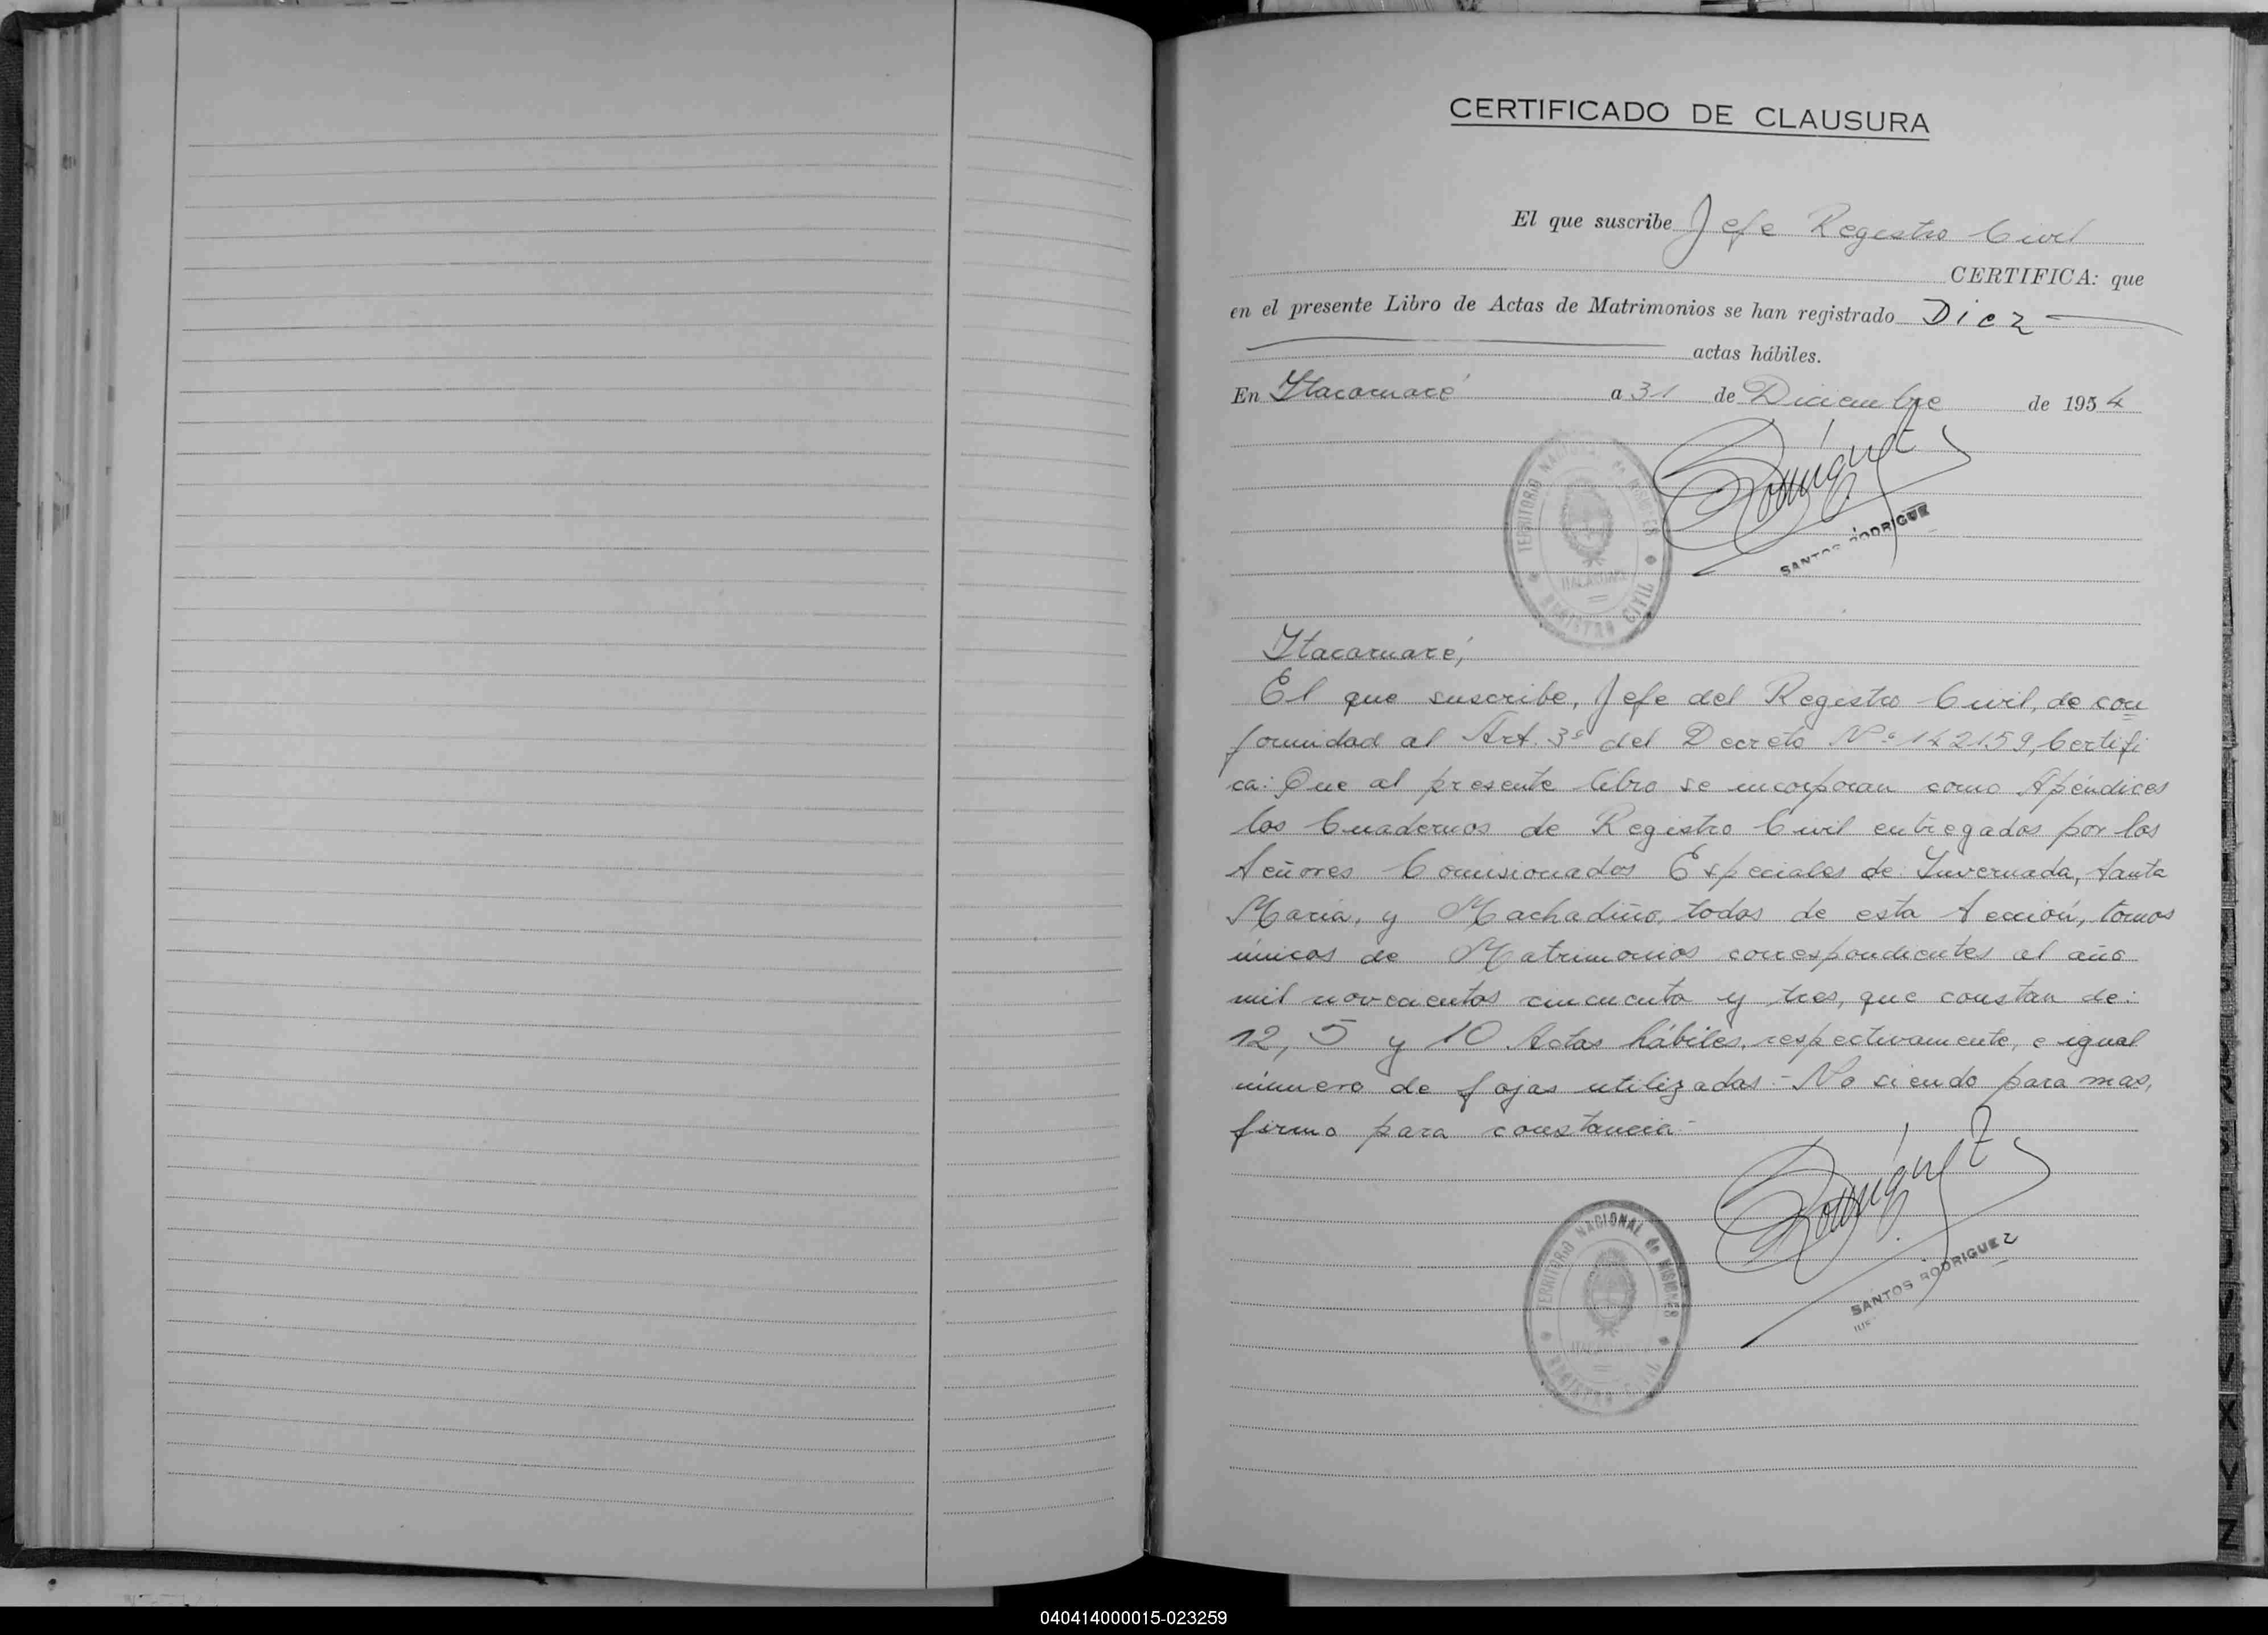 CERTIFICADO DE CLAUSURA
El que suscribe Jefe Registro Civil
CERTIFICA: que
en el presente Libro de Actas de Matrimonios se han registrado Diez
actas hábiles.
En Itacaruaré a 31 de Diciembre de 1954
TERRITORIO NACIONAL de MISIONES
ITACARUARE
REGISTRO CIVIL
Rodríguez
SANTOS RODRIGUE
Itacaruaré,
El que suscribe, Jefe del Registro Civil, de con
formidad al Art. 3º del Decreto Nº 142159, Certifi
ca: Que al presente libro se incorporan como Apéndices
los Cuadernos de Registro Civil entregados por los
Señores Comisionados Especiales de: Invernada, Santa
María, y Machadiño, todos de esta Sección, tomos
únicos de Matrimonios correspondientes al año
mil novecientos cincuenta y tres, que constan de:
12, 5 y 10 Actas hábiles, respectivamente, e igual
número de fojas utilizadas.- No siendo para mas,
firmo para constancia.-
Rodríguez
TERRITORIO NACIONAL de MISIONES
REGISTRO CIVIL
SANTOS RODRIGUEZ
X
Y
Z
040414000015-023259